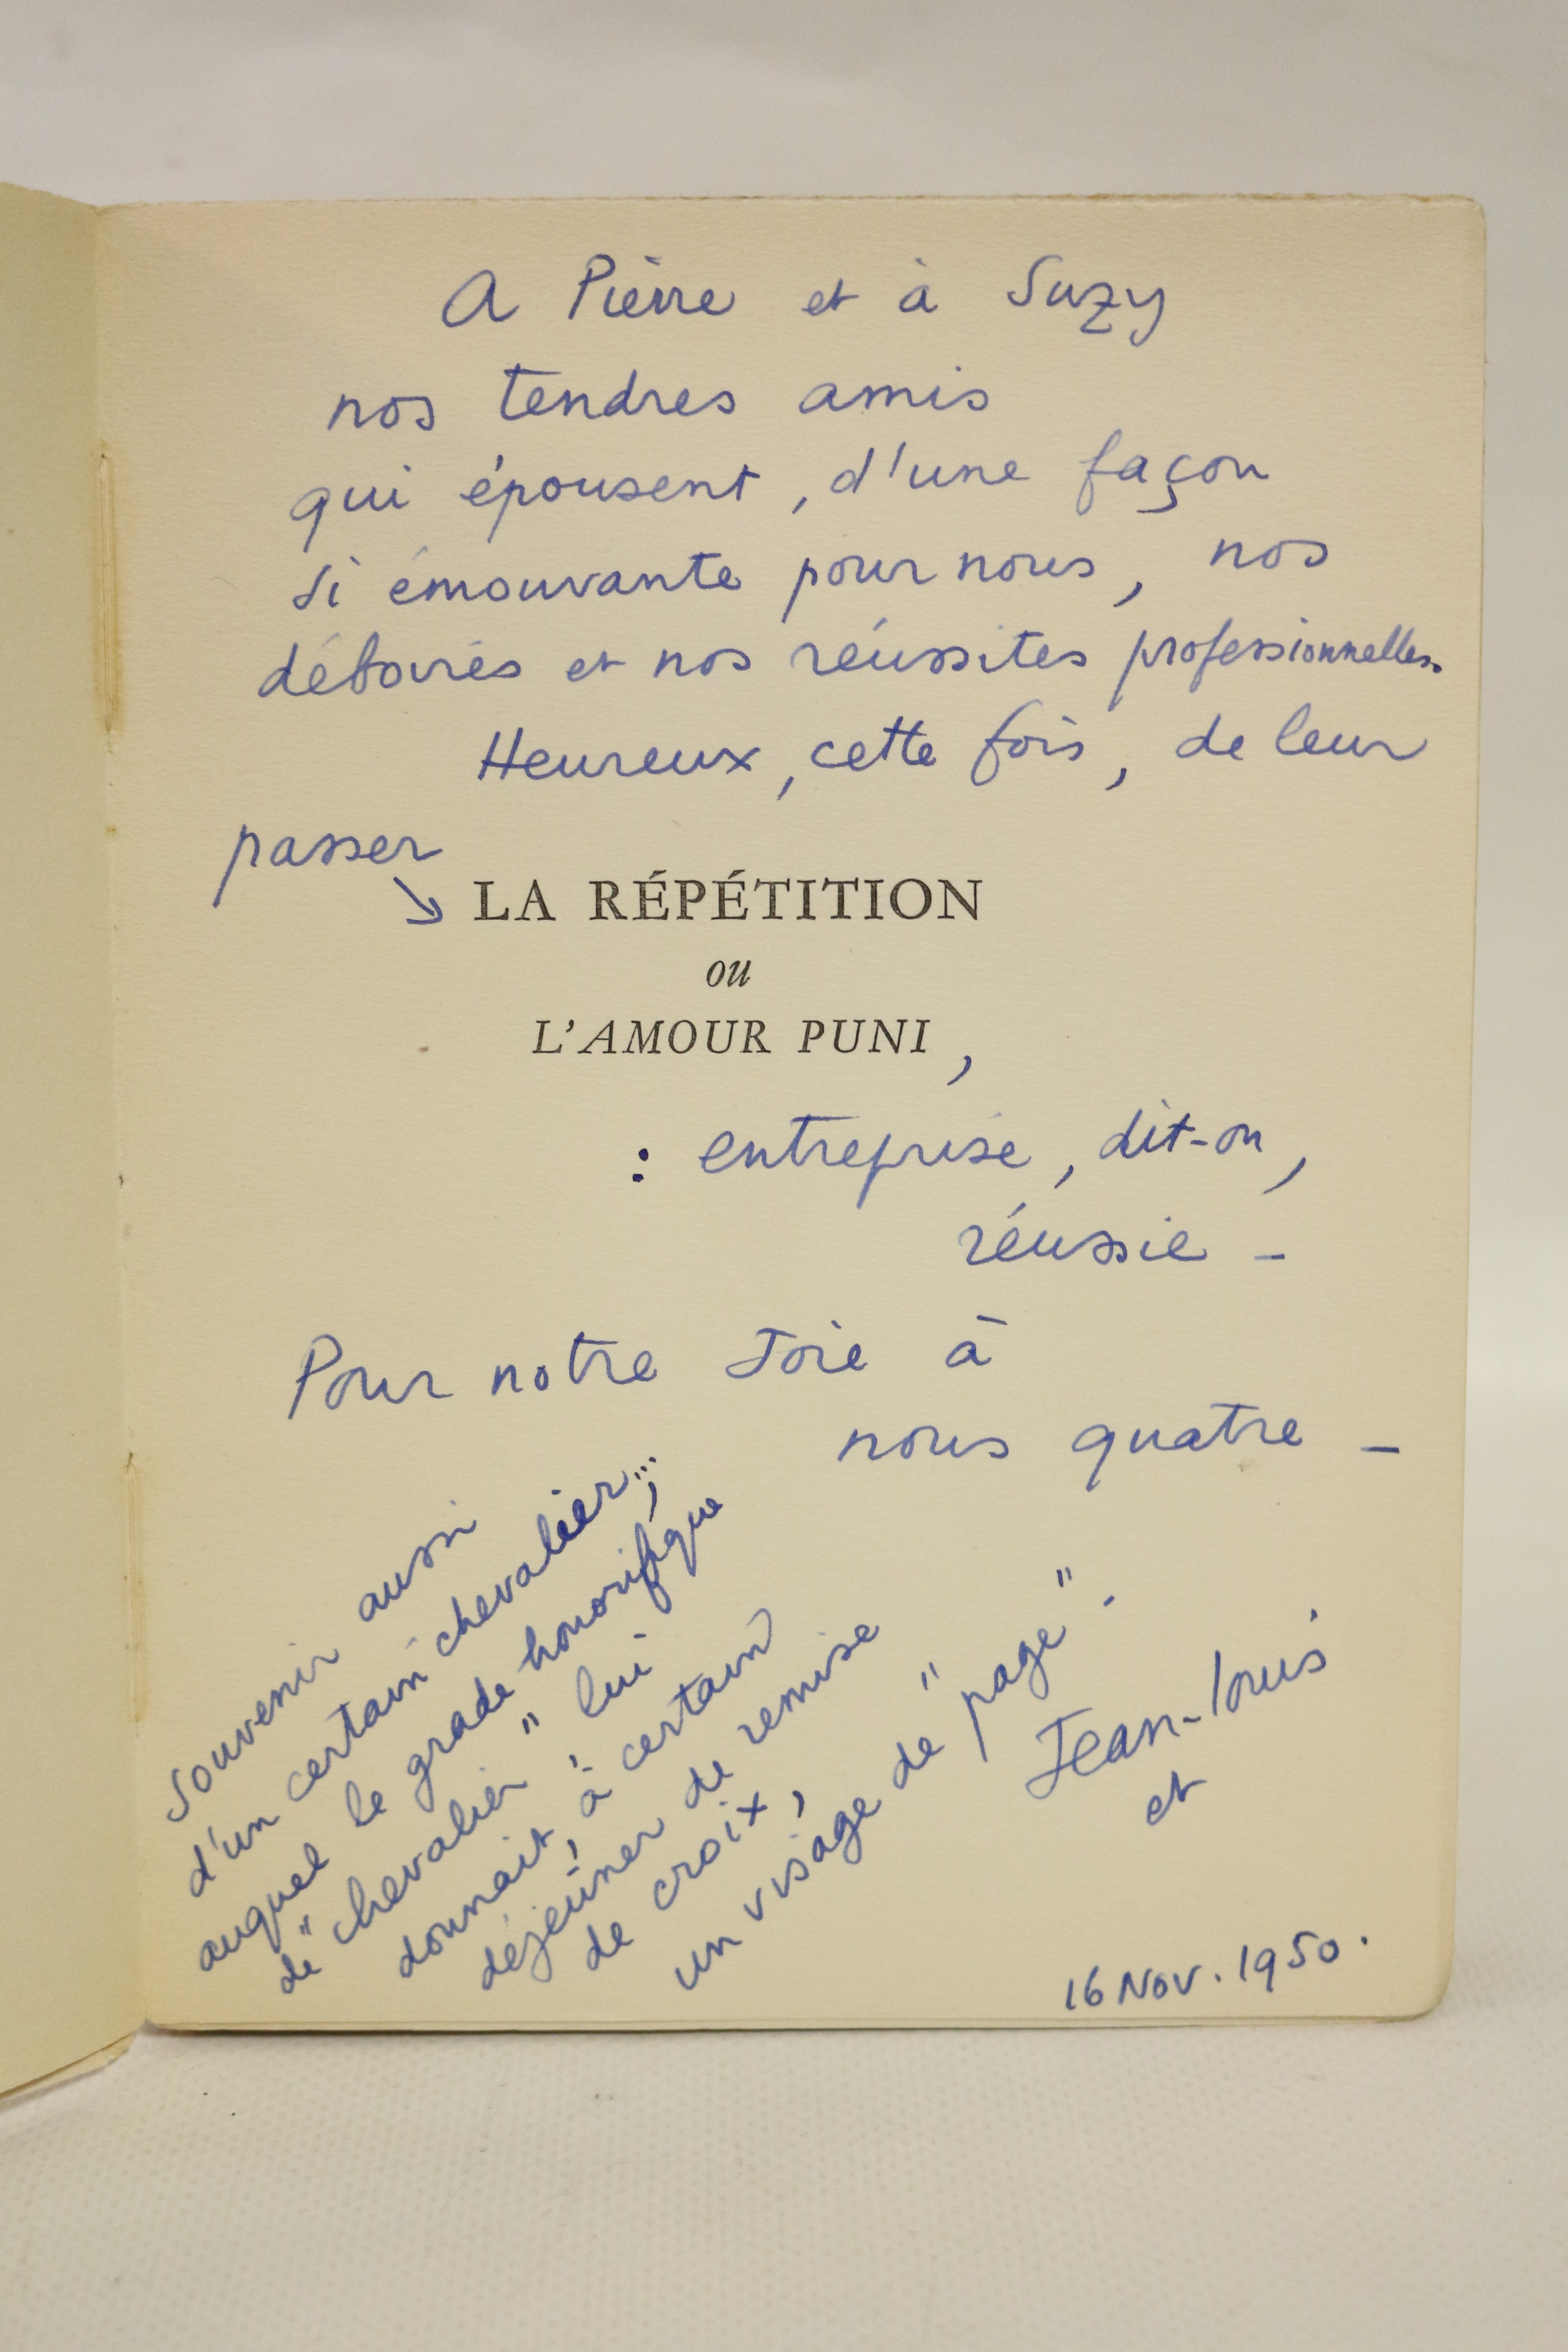 A Pierre et à Suzy
nos tendres amis
qui épousent, d'une façon
si émouvante pour nous, nos
déboires et nos réussites professionnelles.
Heureux, cette fois, de leur
passer
→ LA RÉPÉTITION
ou
L'AMOUR PUNI,
: entreprise, dit-on,
réussie -
Pour notre Joie à
nous quatre -
Souvenir aussi
d'un certain chevalier...,
auquel le grade honorifique
de "chevalier", lui
donnait, à certain
déjeuner de remise
de croix,
un visage de "page".
Jean-Louis
et
16 Nov. 1950.